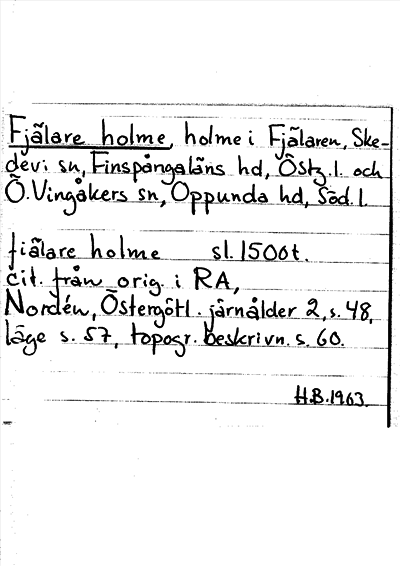 Fjälare holme, holme i Fjälaren, Ske-
devi sn, Finspångaläns hd, Östg. l. och
Ö. Vingåkers sn, Oppunda hd, Söd. l.
fiälare holme sl. 1500t.
cit. från orig. i RA,
Nordén, Östergötl. järnålder 2, s. 48,
läge s. 57, topogr. beskrivn. s. 60.
H.B. 1963.